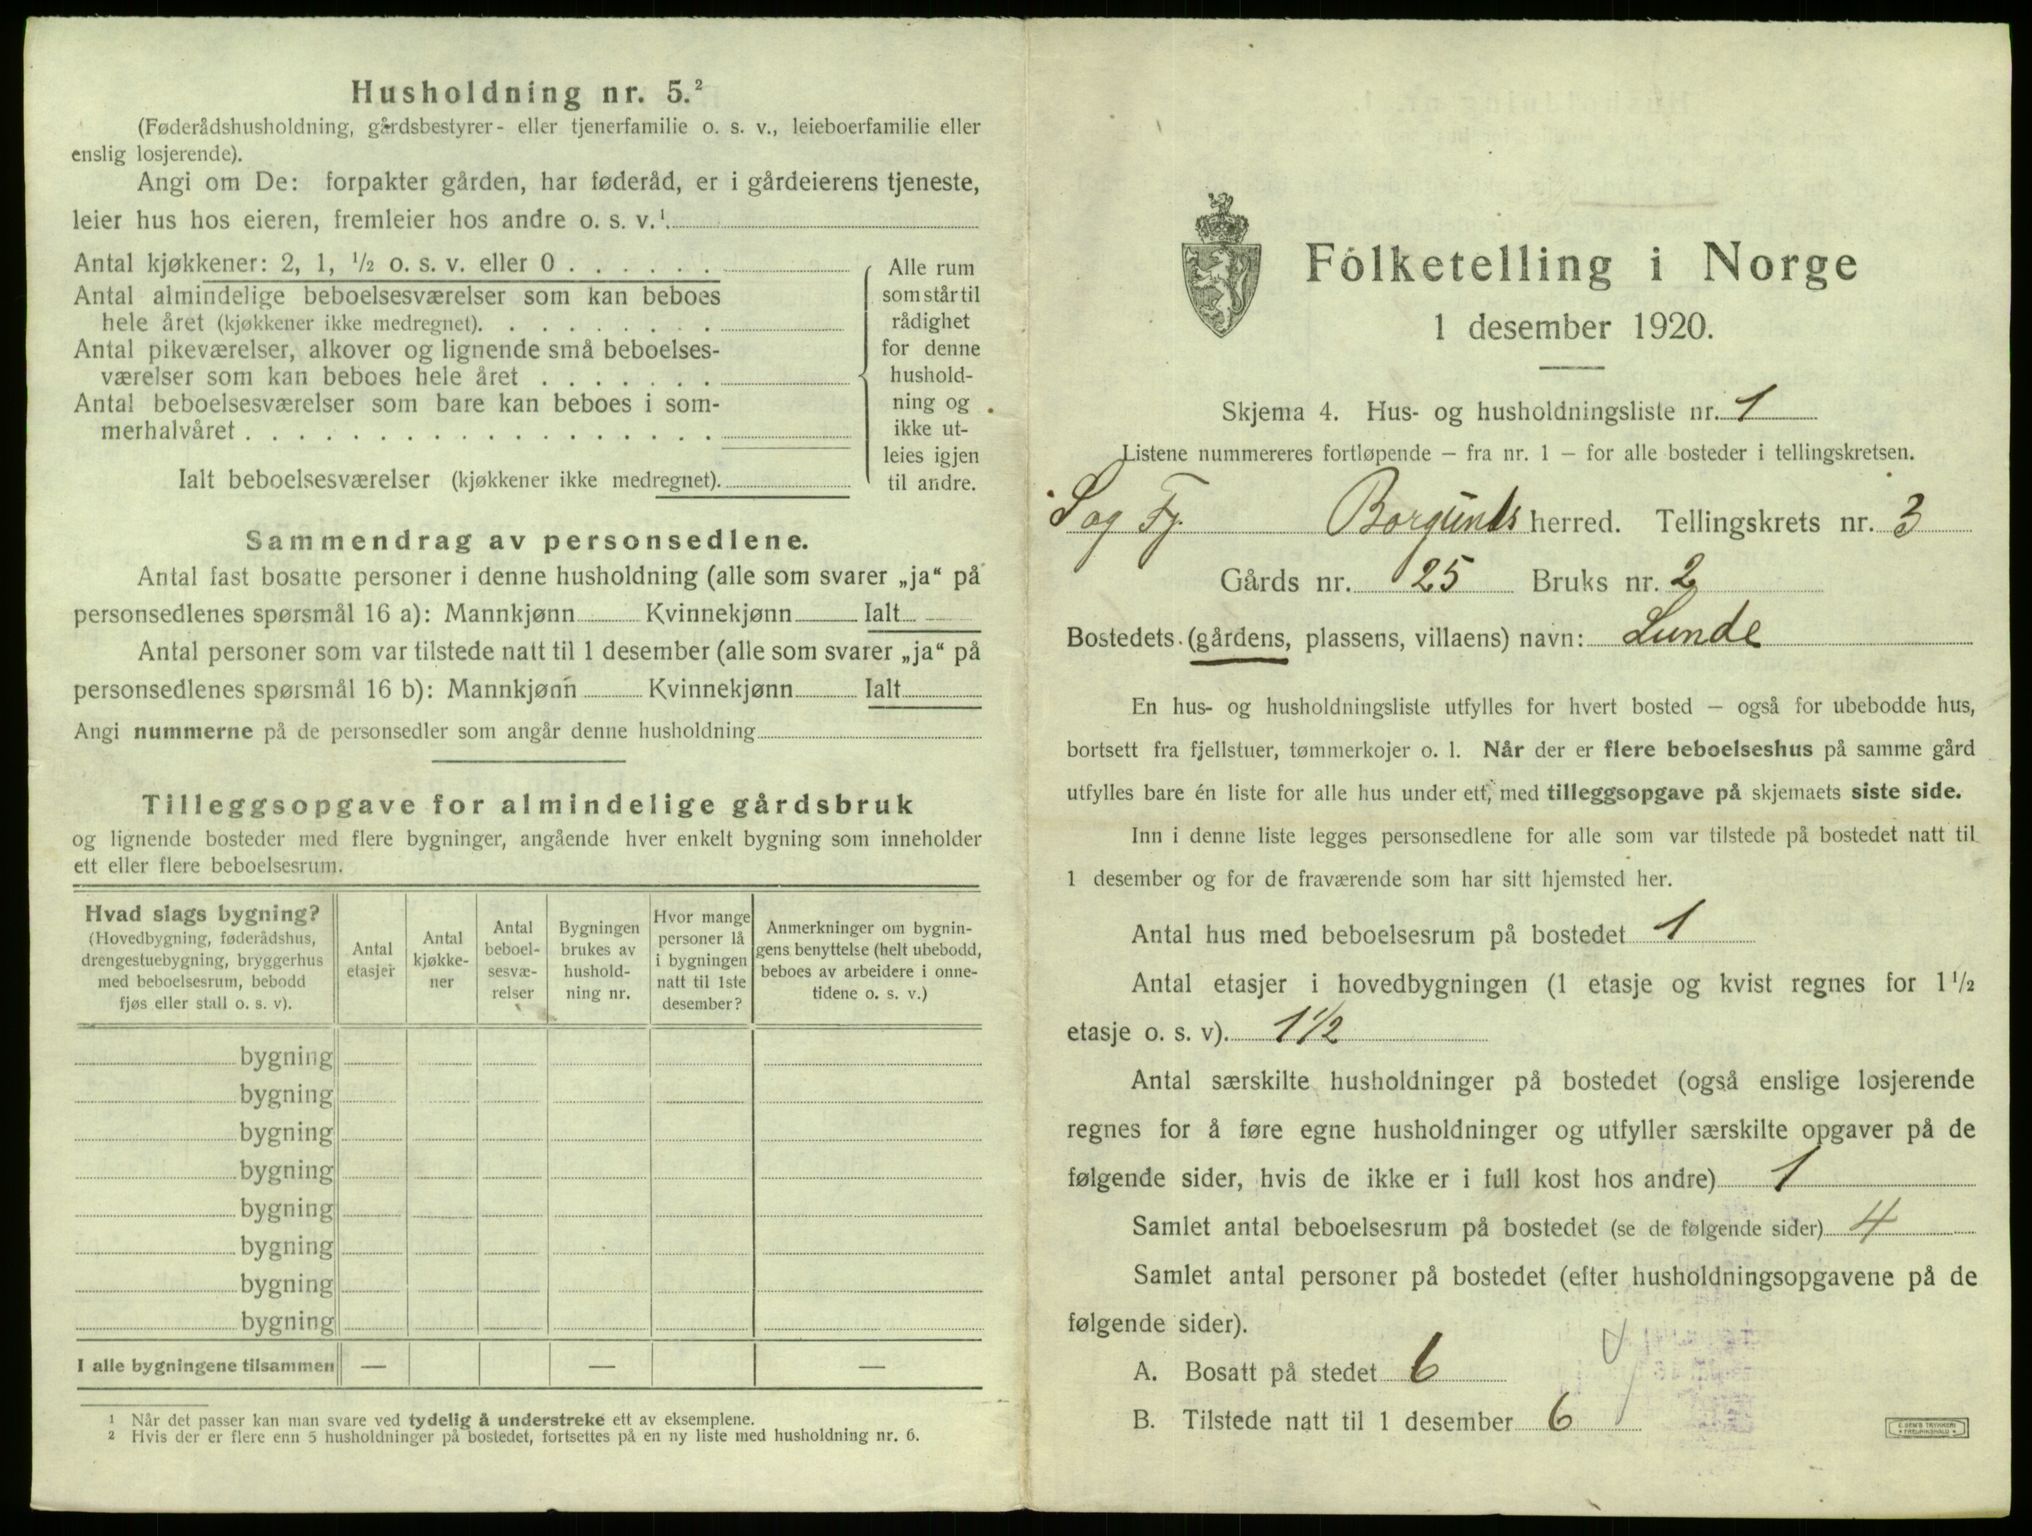 Husholdning nr. 5.²
(Føderådshusholdning, gårdsbestyrer- eller tjenerfamilie o. s. v., leieboerfamilie eller
enslig losjerende).
Angi om De: forpakter gården, har føderåd, er i gårdeierens tjeneste,
leier hus hos eieren, fremleier hos andre o. s. v.¹
Antal kjøkkener: 2, 1, ½ o. s. v. eller 0 . . . . . .
Antal almindelige beboelsesværelser som kan beboes
hele året (kjøkkener ikke medregnet). . . . . . . . . .
Antal pikeværelser, alkover og lignende små beboelses-
værelser som kan beboes hele året . . . . . . .
Antal beboelsesværelser som bare kan beboes i som-
merhalvåret . . . . . . . . . . . . . . . . . .
Ialt beboelsesværelser (kjøkkener ikke medregnet).
Alle rum
som står til
rådighet
for denne
hushold-
ning og
ikke ut-
leies igjen
til andre.
Sammendrag av personsedlene.
Antal fast bosatte personer i denne husholdning (alle som svarer „ja“ på
personsedlenes spørsmål 16 a): Mannkjønn Kvinnekjønn Ialt
Antal personer som var tilstede natt til 1 desember (alle som svarer „ja“ på
personsedlenes spørsmål 16 b): Mannkjønn Kvinnekjønn Ialt
Angi nummerne på de personsedler som angår denne husholdning
Tilleggsopgave for almindelige gårdsbruk
og lignende bosteder med flere bygninger, angående hver enkelt bygning som inneholder
ett eller flere beboelsesrum.
Hvad slags bygning?
(Hovedbygning, føderådshus,
drengestuebygning, bryggerhus
med beboelsesrum, bebodd
fjøs eller stall o. s. v).
Antal
etasjer
Antal
kjøkke-
ner
Antal
beboel-
sesvæ-
relser
Bygningen
brukes av
hushold-
ning nr.
Hvor mange
personer lå
i bygningen
natt til 1ste
desember?
Anmerkninger om bygnin-
gens benyttelse (helt ubebodd,
beboes av arbeidere i onne-
tidene o. s. v.)
bygning
bygning
bygning
bygning
bygning
bygning
bygning
bygning
I alle bygningene tilsammen — — —
¹ Når det passer kan man svare ved tydelig å understreke ett av eksemplene.
² Hvis der er flere enn 5 husholdninger på bostedet, fortsettes på en ny liste med husholdning nr. 6.
Folketelling i Norge
1 desember 1920.
Skjema 4. Hus- og husholdningsliste nr. 1
Listene nummereres fortløpende – fra nr. 1 – for alle bosteder i tellingskretsen.
S og Fj. Borgunds herred. Tellingskrets nr. 3
Gårds nr. 25 Bruks nr. 2
Bostedets (gårdens, plassens, villaens) navn: Lunde
En hus- og husholdningsliste utfylles for hvert bosted – også for ubebodde hus,
bortsett fra fjellstuer, tømmerkojer o. l. Når der er flere beboelseshus på samme gård
utfylles bare én liste for alle hus under ett, med tilleggsopgave på skjemaets siste side.
Inn i denne liste legges personsedlene for alle som var tilstede på bostedet natt til
1 desember og for de fraværende som har sitt hjemsted her.
Antal hus med beboelsesrum på bostedet 1
Antal etasjer i hovedbygningen (1 etasje og kvist regnes for 1½
etasje o. s. v). 1½
Antal særskilte husholdninger på bostedet (også enslige losjerende
regnes for å føre egne husholdninger og utfyller særskilte opgaver på de
følgende sider, hvis de ikke er i full kost hos andre) 1
Samlet antal beboelsesrum på bostedet (se de følgende sider) 4
Samlet antal personer på bostedet (efter husholdningsopgavene på de
følgende sider).
A. Bosatt på stedet 6
B. Tilstede natt til 1 desember 6